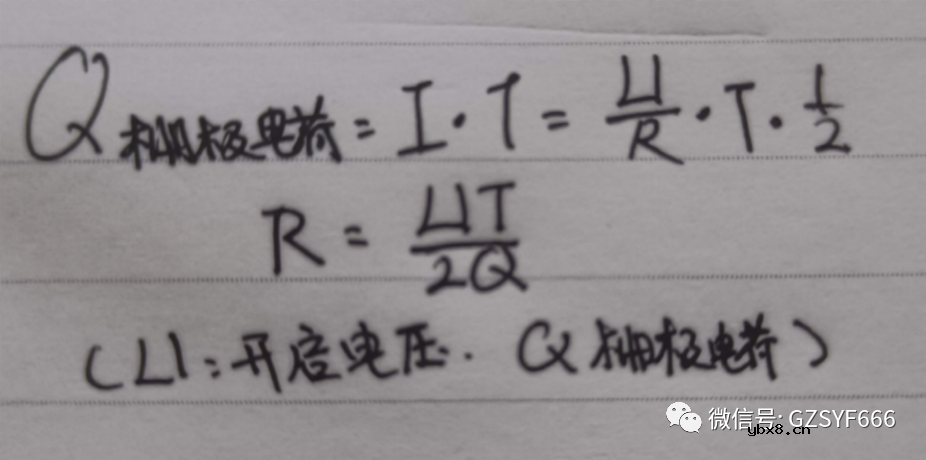 Q栅极电荷 = I·T = U/R · T · 1/2
R = UT/2Q
(U:开启电压. Q栅极电荷)
微信号: GZSYF666
ybx8.cn